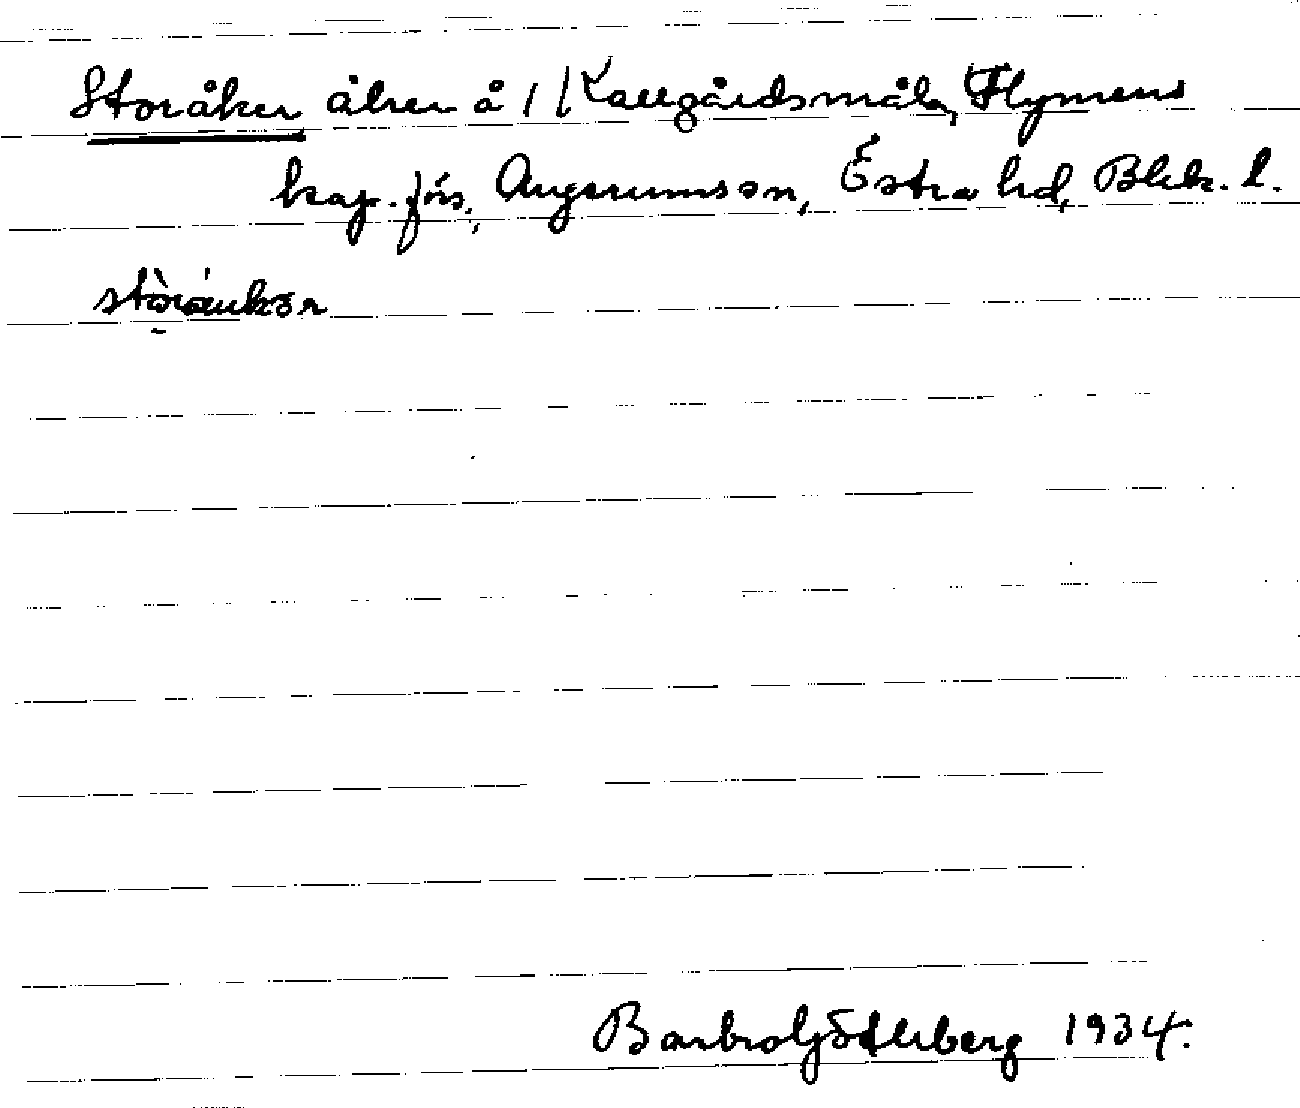 Storåker åker å 1/1 Kallgårdsmåla, Flymens
kap. förs., Augerumssn, Östra hd, Blek. l.
Barbro Götleberg 1934.